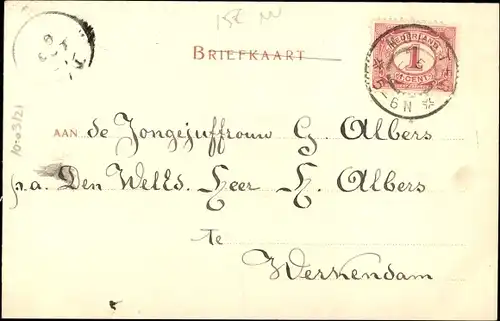 15c
BRIEFKAART
NEDERLAND
1
CENT
5-6N
10-03/21
AAN de Jongejuffrouw G. Albers
p.a. Den WelEd. Heer H. Albers
te
Werkendam